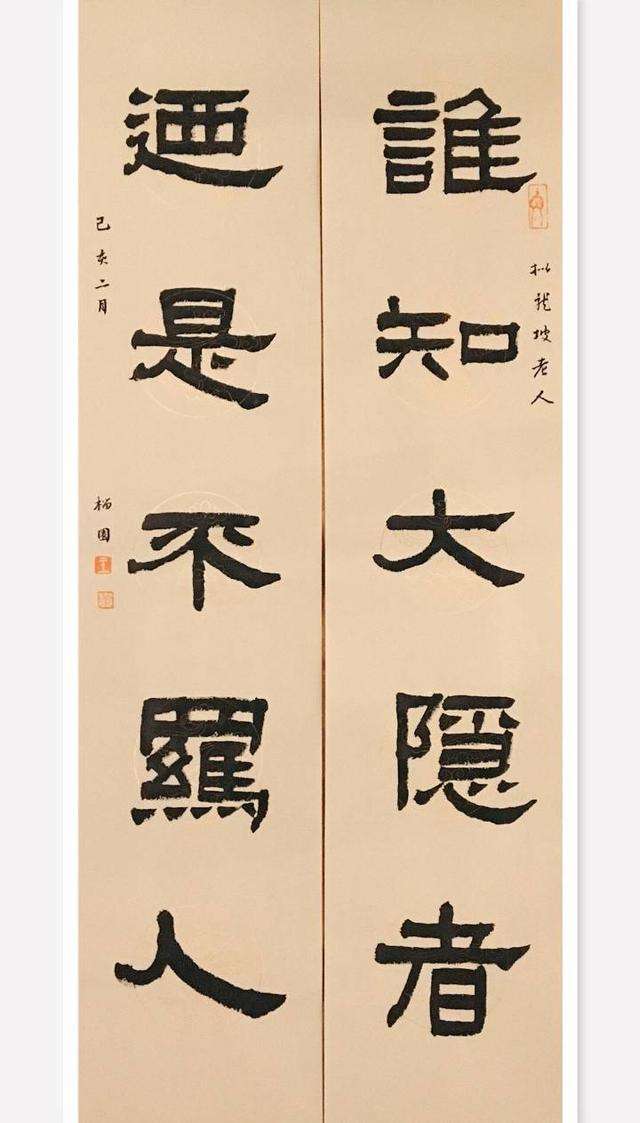 拟龍坡老人
誰知大隱者
迺是不羈人
己亥二月